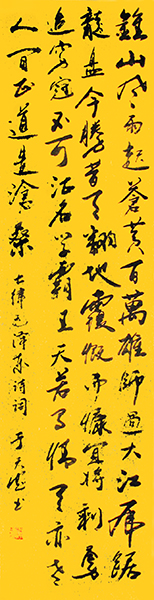 鍾山风雨起蒼黄百萬雄師過大江虎踞
龍盘今勝昔天翻地覆慨而慷宜将剩勇
追穷寇不可沽名学霸王天若有情天亦老
人间正道是滄桑 七律毛泽东诗词 于大书